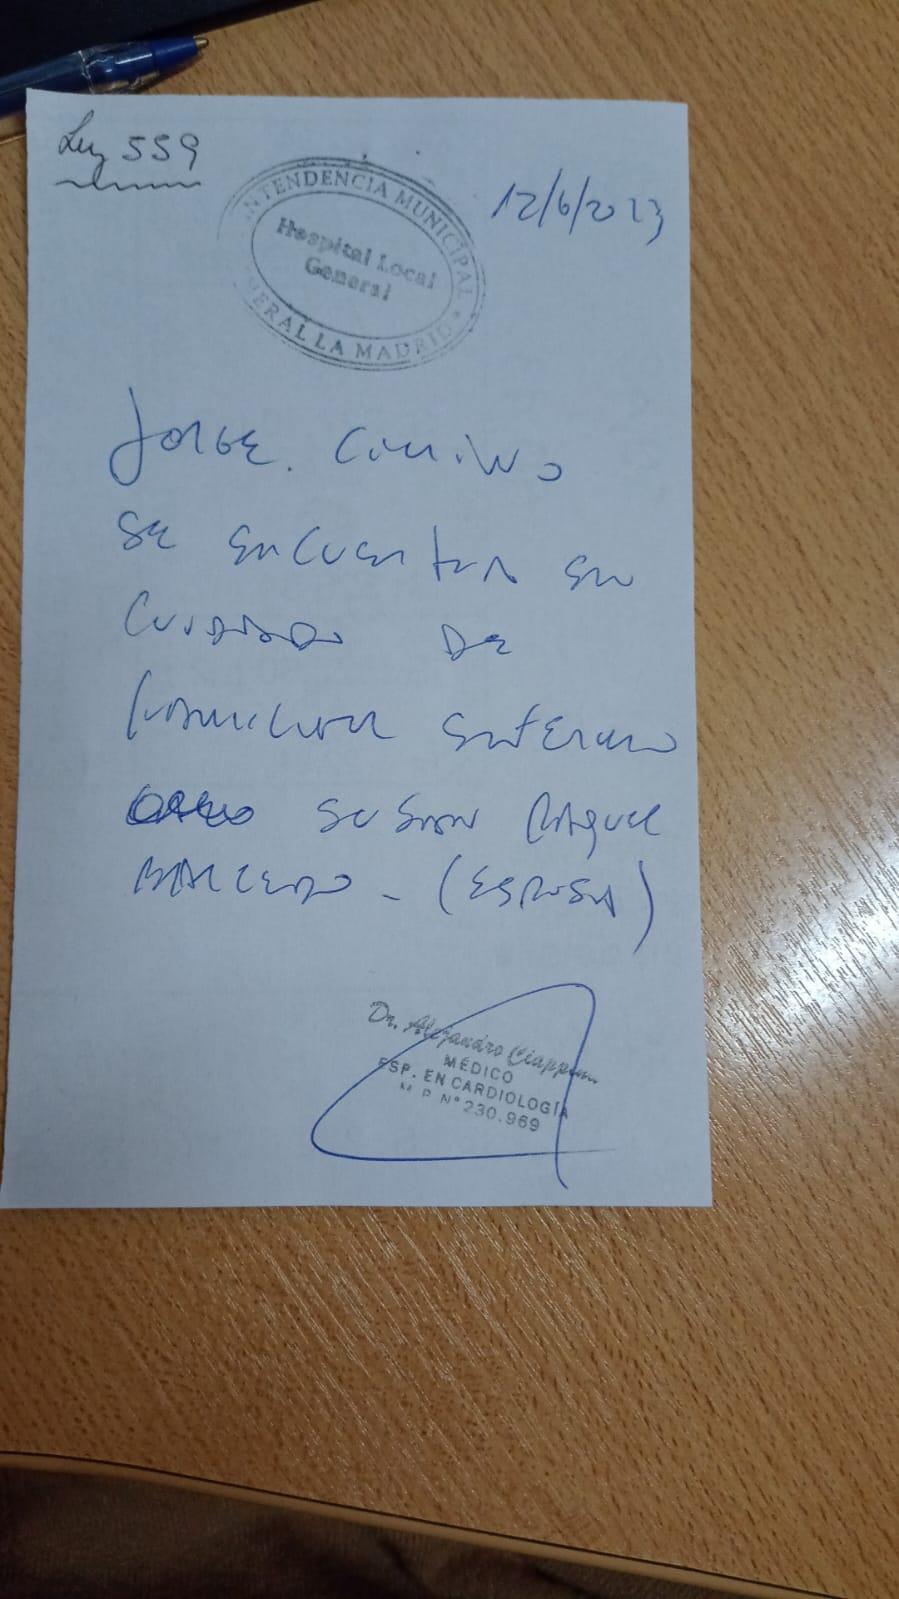 Leg 559
INTENDENCIA MUNICIPAL
12/6/2023
Hospital Local
General
ERAL LA MADRID
JORGE.
SE ENCUENTRA EN
CUIDADO DE
FAMILIAR ENFERMO
SUSANA RAQUEL
BALCEDO - (ESPOSA)
Dr. Alejandro
MÉDICO
ESP. EN CARDIOLOGÍA
M.P. N° 230.969